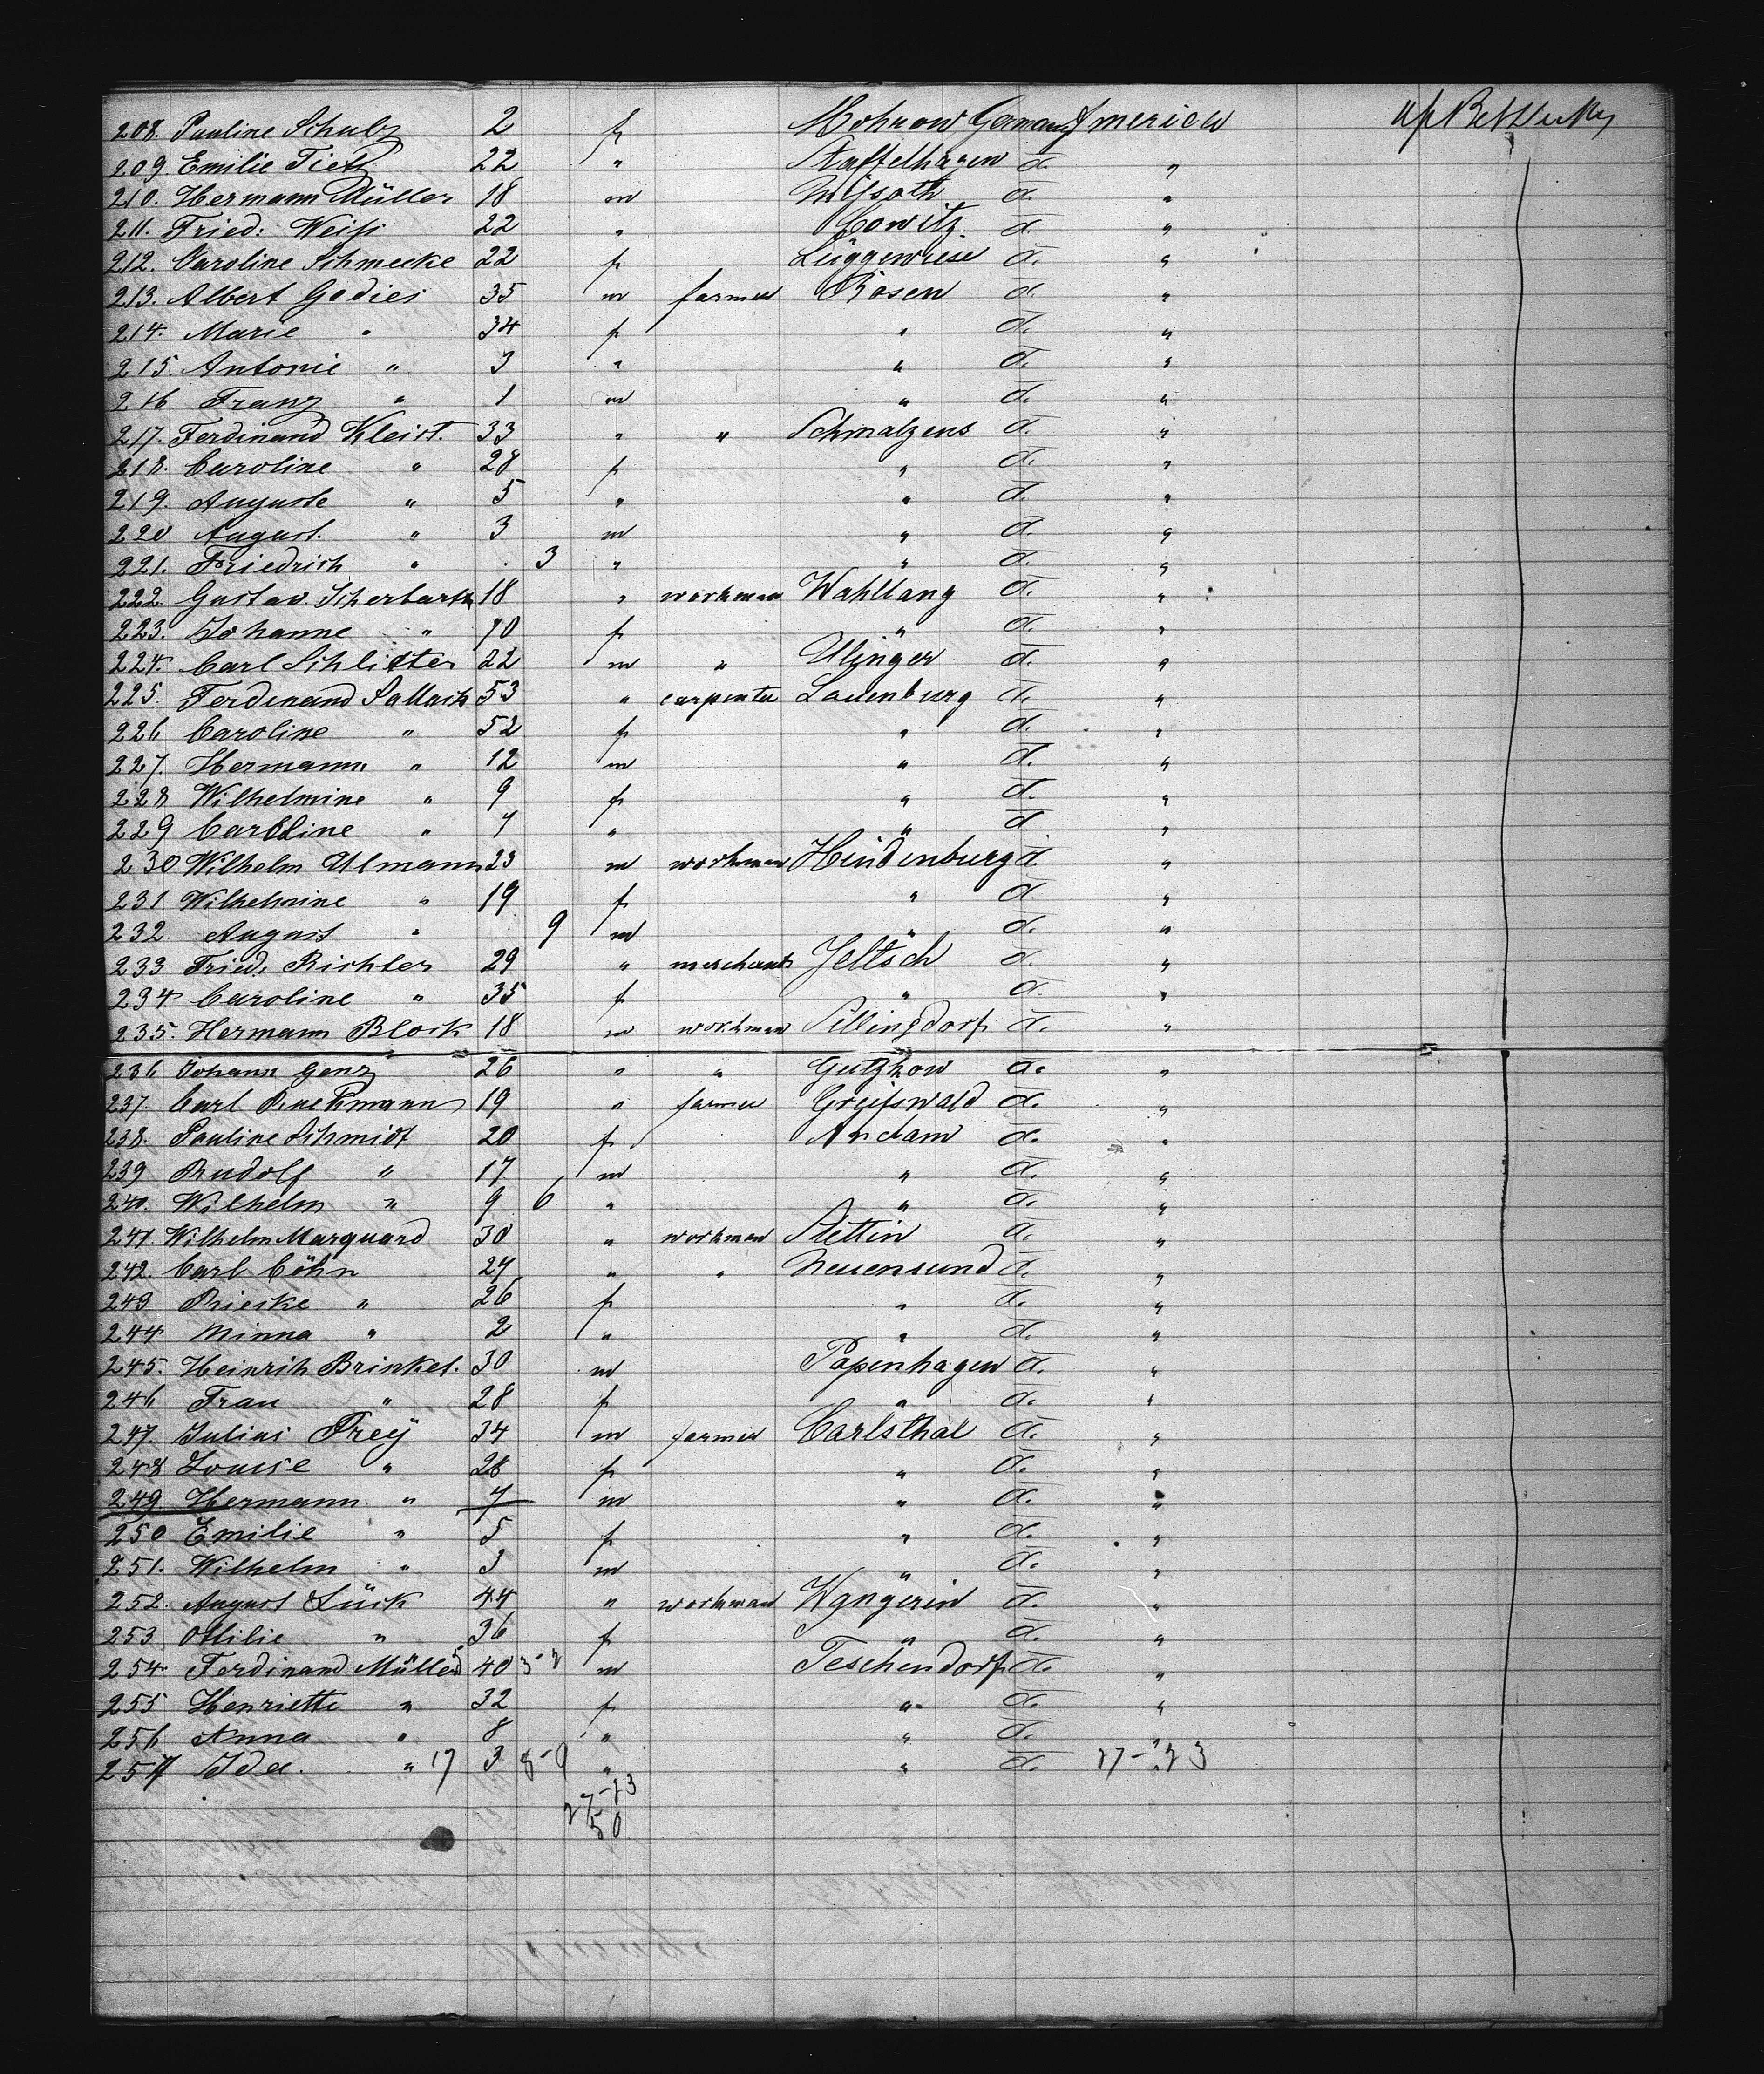 208. Pauline Schulz 2 f Mohnow Germany America up Between decks
209 Emilie Tietz 22 " Staffelhagen d. "
210. Hermann Müller 18 m d. "
211. Fried: Weiss 22 " Cowitz d. "
212. Caroline Schmecke 22 f Lüggewiese d. "
213. Albert Gedies 35 m farmer Rosen d. "
214. Marie " 34 f " d. "
215. Antonie " 3 " " d. "
216 Franz " 1 m " d. "
217. Ferdinand Kleist. 33 " " Schmalzens d. "
218. Caroline " 28 f " d. "
219. Auguste " 5 " " d. "
220 August. " 3 m " d. "
221. Friedrich " . 3 " " d. "
222. Gustav. Scherbarth 18 " workman Wahllang d. "
223. Johanne " 70 f " d. "
224. Carl Schlichter 22 m " Ulinger d. "
225. Ferdinand Sallach 53 " carpenter Lauenburg d. "
226 Caroline " 52 f " d. "
227. Hermann " 12 m " d. "
228 Wilhelmine " 9 f " d. "
229 Caroline " 7 " " d "
230 Wilhelm Ulmann 23 m workman Hindenburg d. "
231 Wilhelmine " 19 f " d "
232. August " 9 m " d. "
233 Fried: Richter 29 " merchant Jeltsch d. "
234 Caroline " 35 f " d. "
235. Hermann Block 18 m workman Sellingdorf d. "
236 Johann Genz 26 " " Gutzkow d. "
237. Carl Bruckmann 19 " farmer Greifswald d. "
238. Pauline Schmidt 20 f Anclam d. "
239 Rudolf " 17 m " d. "
240. Wilhelm " 9 6 " " d. "
241 Wilhelm Marquard 30 " workman Stettin d. "
242. Carl Cöhn 27 " " Neuensund d. "
243 Rieke " 26 f " d. "
244 Minna " 2 " " d. "
245. Heinrich Brinkel. 30 m Papenhagen d. "
246 Frau " 28 f " d. "
247. Julius Frey 34 m farmer Carlsthal d. "
248 Louise " 28 f " d. "
249. Hermann " 7 m " d. "
250 Emilie " 5 f " d. "
251. Wilhelm " 3 m " d. "
252. August Lück 44 " workman Wangerin d. "
253 Ottilie " 36 f " d. "
254. Ferdinand Müller 5 40 3-2 m Teschendorf d. "
255 Henriette " 32 f " d. "
256 Anna " 8 " " d. "
257 Ida. " 17 3 8-9 " " d. 27-23
27-23
50